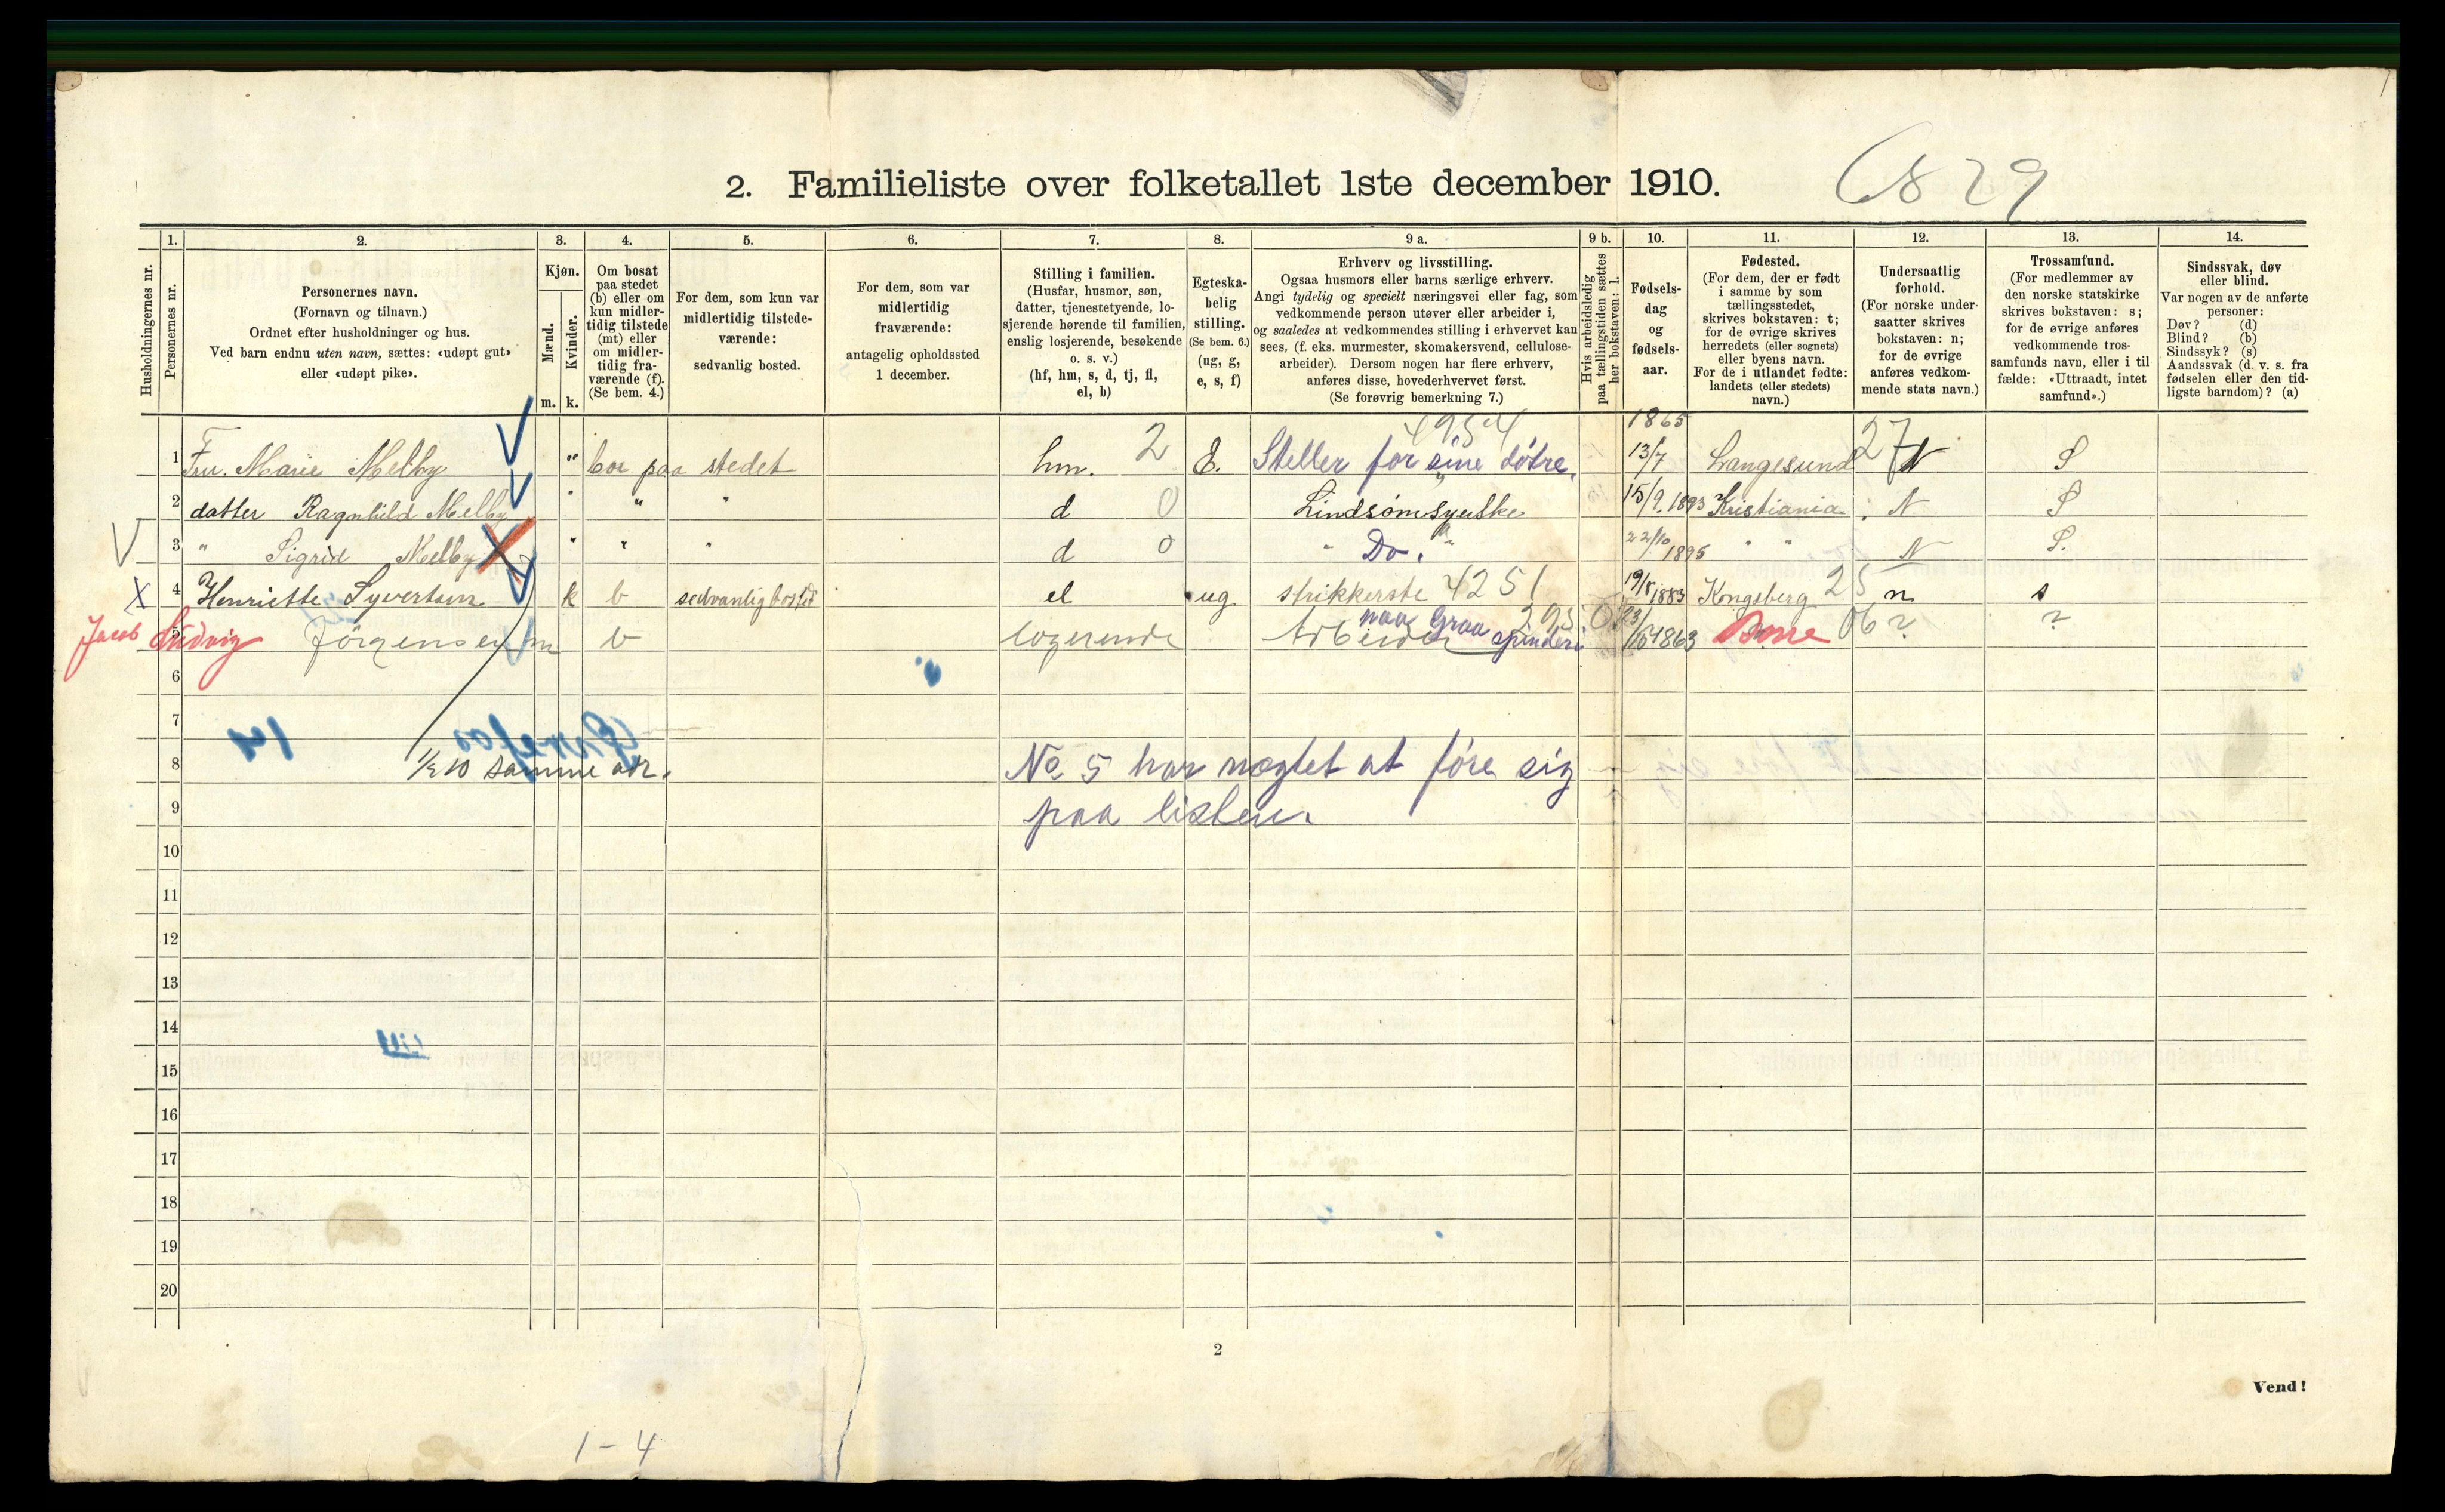 6829
2. Familieliste over folketallet 1ste december 1910.
Husholdningernes nr.
1. Personernes nr.
2. Personernes navn.
(Fornavn og tilnavn.)
Ordnet efter husholdninger og hus.
Ved barn endnu uten navn, sættes: «udøpt gut»
eller «udøpt pike».
3. Kjøn.
Mænd. m.
Kvinder. k.
4. Om bosat
paa stedet
(b) eller om
kun midler-
tidig tilstede
(mt) eller
om midler-
tidig fra-
værende (f).
(Se bem. 4.)
5. For dem, som kun var
midlertidig tilstede-
værende:
sedvanlig bosted.
6. For dem, som var
midlertidig
fraværende:
antagelig opholdssted
1 december.
7. Stilling i familien.
(Husfar, husmor, søn,
datter, tjenestetyende, lo-
sjerende hørende til familien,
enslig losjerende, besøkende
o. s. v.)
(hf, hm, s, d, tj, fl,
el, b)
8. Egteska-
belig
stilling.
(Se bem. 6.)
(ug, g,
e, s, f)
9 a. Erhverv og livsstilling.
Ogsaa husmors eller barns særlige erhverv.
Angi tydelig og specielt næringsvei eller fag, som
vedkommende person utøver eller arbeider i,
og saaledes at vedkommendes stilling i erhvervet kan
sees, (f. eks. murmester, skomakersvend, cellulose-
arbeider). Dersom nogen har flere erhverv,
anføres disse, hovederhvervet først.
(Se forøvrig bemerkning 7.)
9 b. Hvis arbeidsledig
paa tællingstiden sættes
her bokstaven: l.
10. Fødsels-
dag
og
fødsels-
aar.
11. Fødested.
(For dem, der er født
i samme by som
tællingsstedet,
skrives bokstaven: t;
for de øvrige skrives
herredets (eller sognets)
eller byens navn.
For de i utlandet fødte:
landets (eller stedets)
navn.)
12. Undersaatlig
forhold.
(For norske under-
saatter skrives
bokstaven: n;
for de øvrige
anføres vedkom-
mende stats navn.)
13. Trossamfund.
(For medlemmer av
den norske statskirke
skrives bokstaven: s;
for de øvrige anføres
vedkommende tros-
samfunds navn, eller i til
fælde: «Uttraadt, intet
samfund».)
14. Sindssvak, døv
eller blind.
Var nogen av de anførte
personer:
Døv? (d)
Blind? (b)
Sindssyk? (s)
Aandssvak (d. v. s. fra
fødselen eller den tid-
ligste barndom)? (a)
1 Fru. Marie Melby " bor paa stedet hm. 2 E. 4954 Steller for sine døtre. 1865 13/7 Langesund 27 N S
2 datter Ragnhild Melby " " " d 0 Lindsømsyerske 15/9 1893 Kristiania. N S
3 " Sigrid Melby " " " d 0 " Do. " 22/10 1895 " " N S.
4 Henriette Syvertsen k b sedvanlig bosted el ug strikkerske 4251 19/8 1883 Kongsberg 25 n s
5 Jacob Ludvig Jörgensen m b logerende Arbeider paa Graa spinderi 23/10 1863 Borre 06 ? ?
6
7
8 1/2 10 samme adr. No 5 har nægtet at føre sig
9 paa listen.
10
11
12
13
14
15
16
17
18
19
20
2
Vend!
1-4